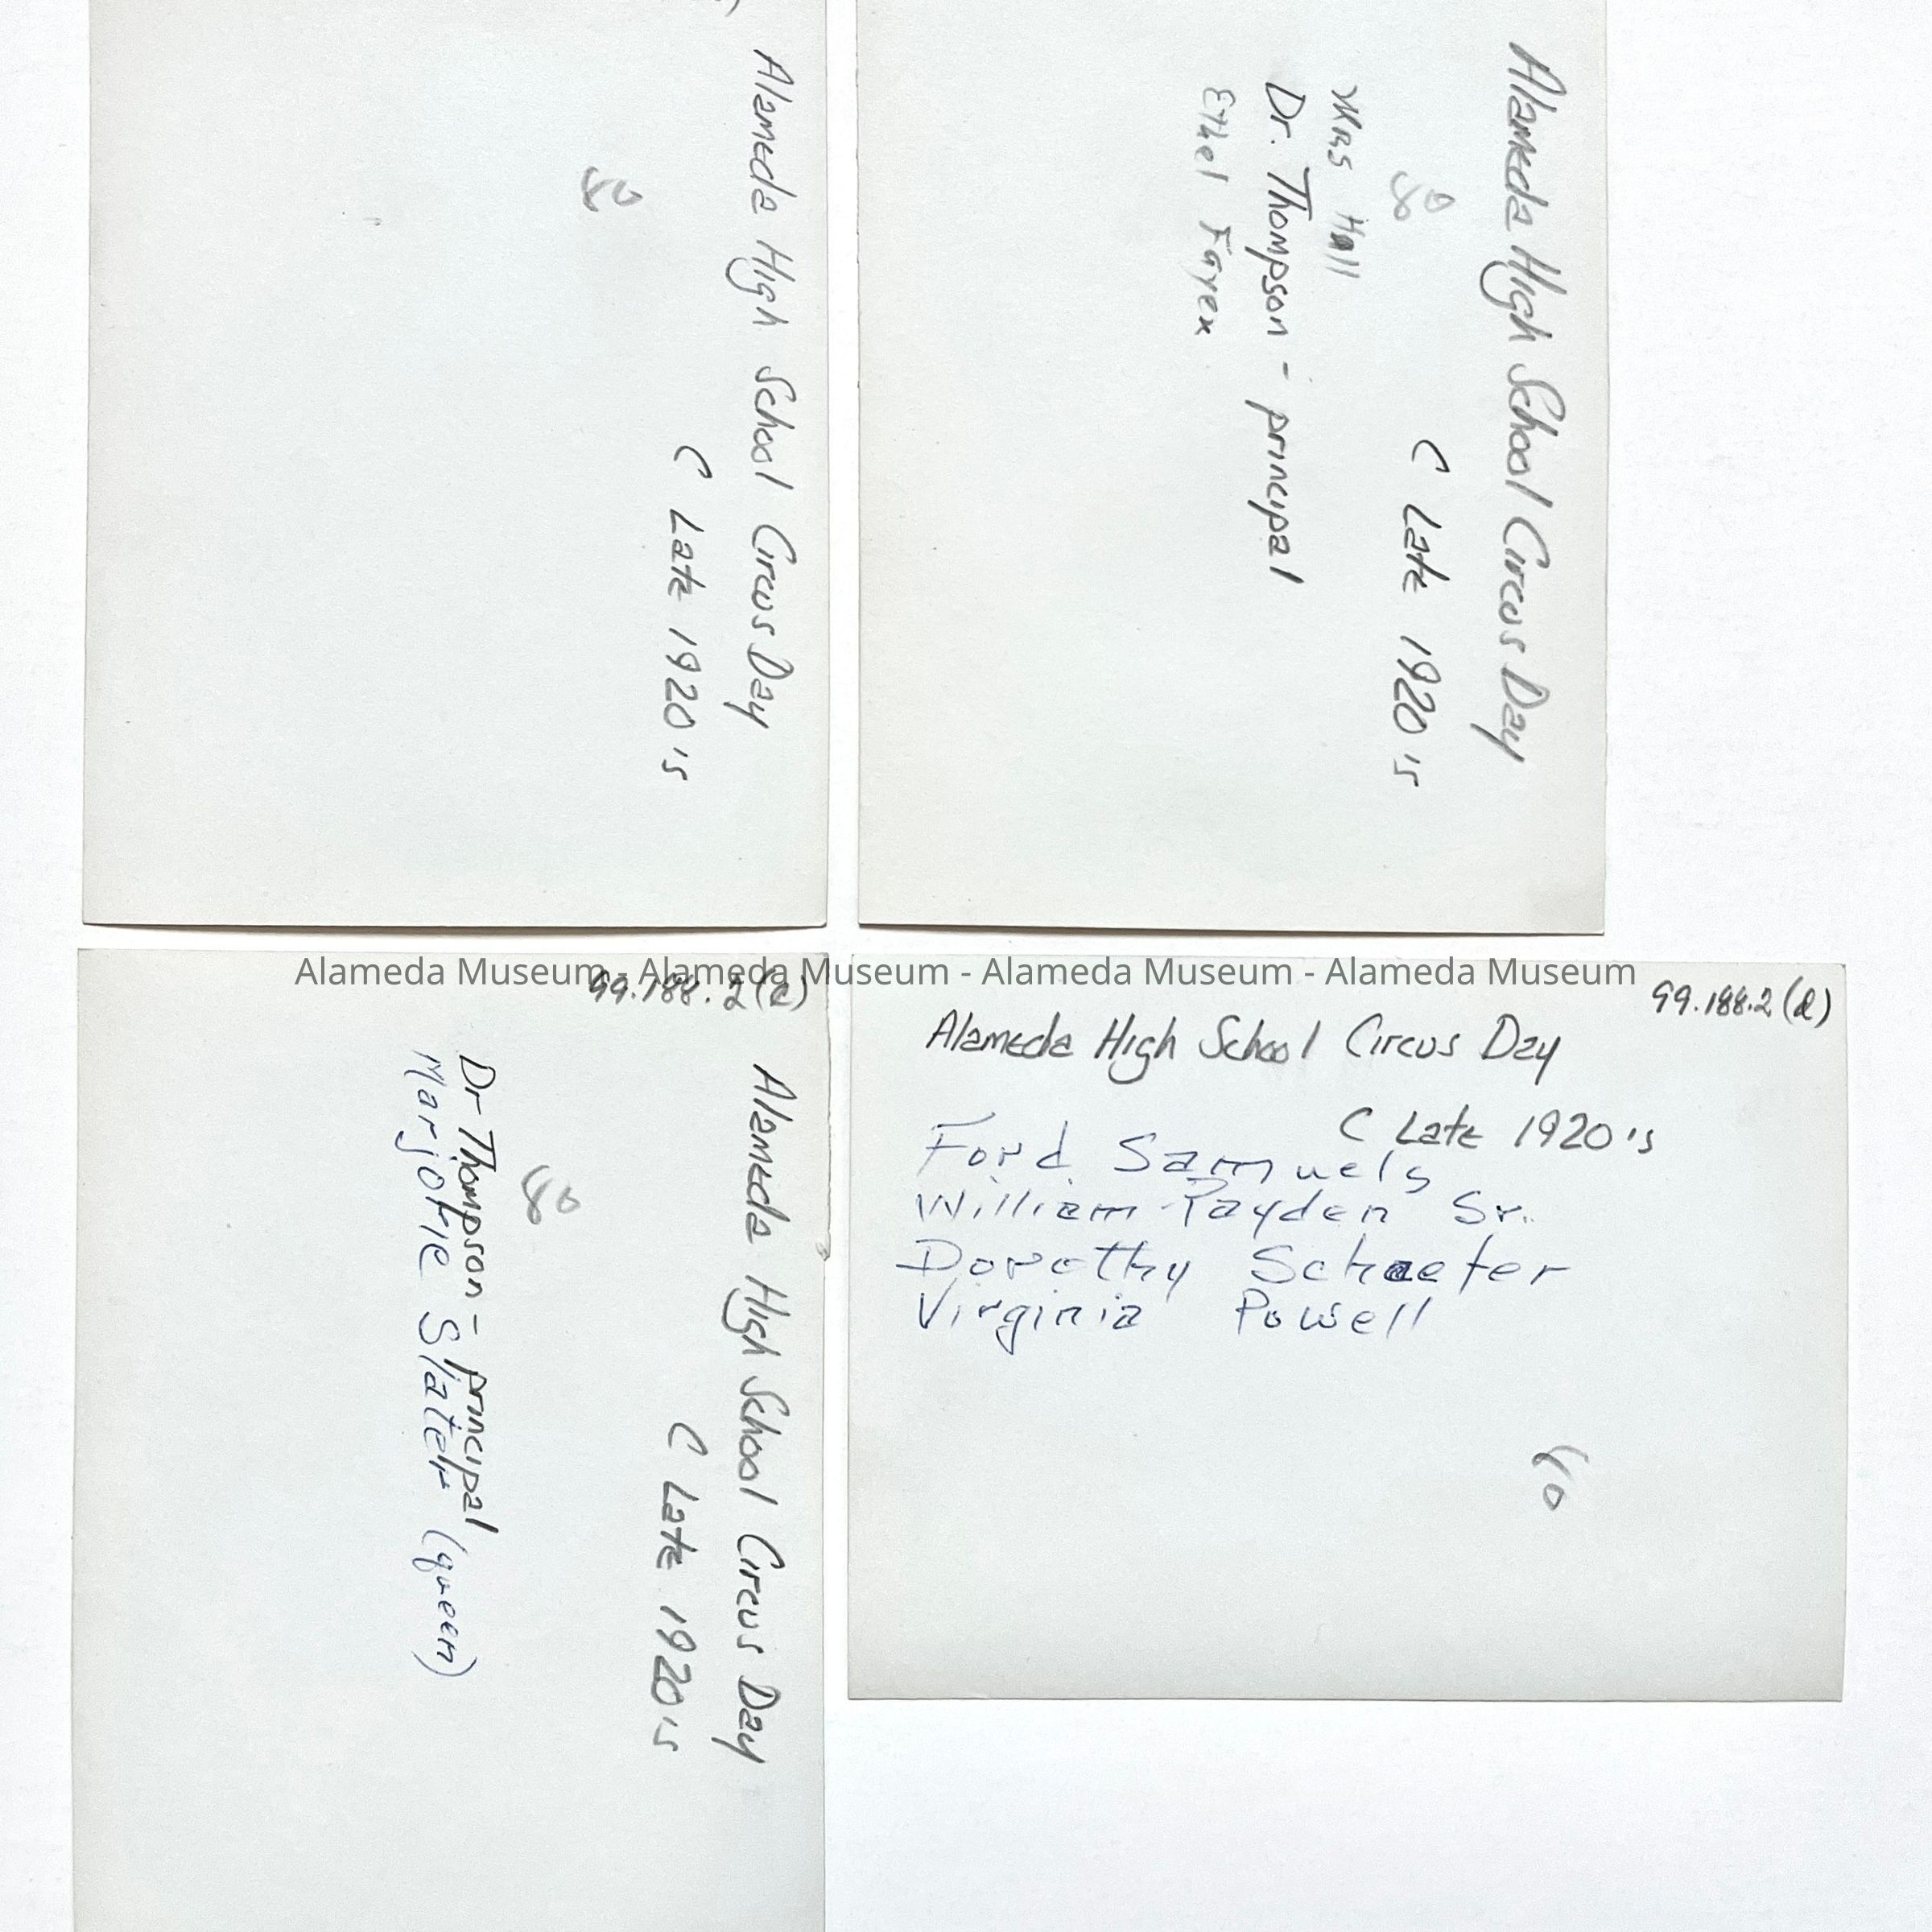 Alameda High School Circus Day
C Late 1920's
Alameda High School Circus Day
C Late 1920's
Miss Hall
Dr. Thompson - principal
Ethel Fayex
Alameda Museum - Alameda Museum - Alameda Museum - Alameda Museum
Alameda High School Circus Day
C Late 1920's
Dr Thompson - principal
Marjorie Slater (queen)
99.188.2 (d)
Alameda High School Circus Day
C Late 1920's
Ford Samuels
William Payden Sr.
Dorothy Schaefer
Virginia Powell